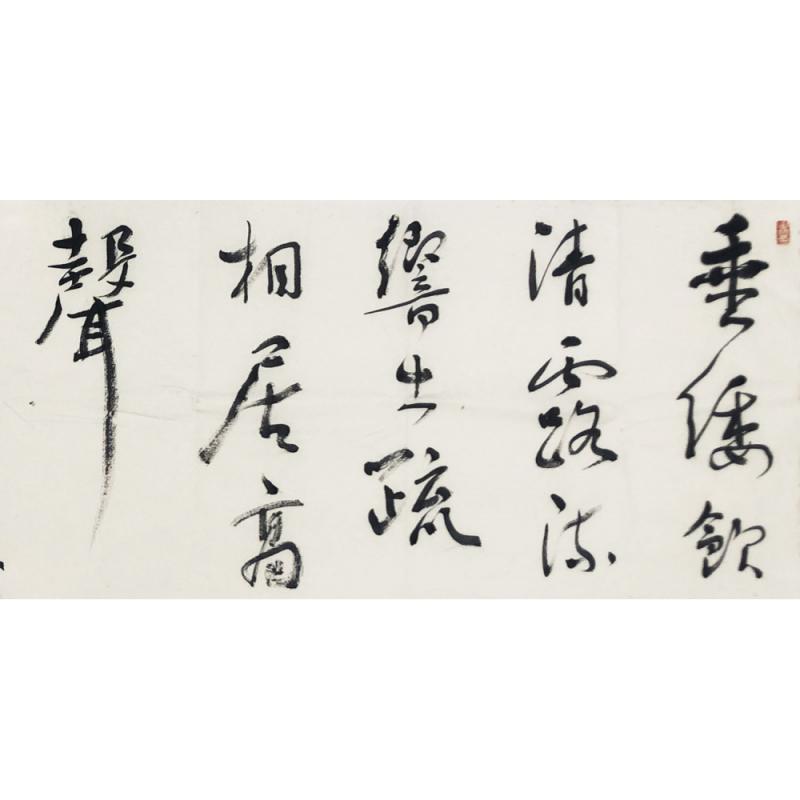 垂緌飲
清露流
響出疏
桐居高
聲